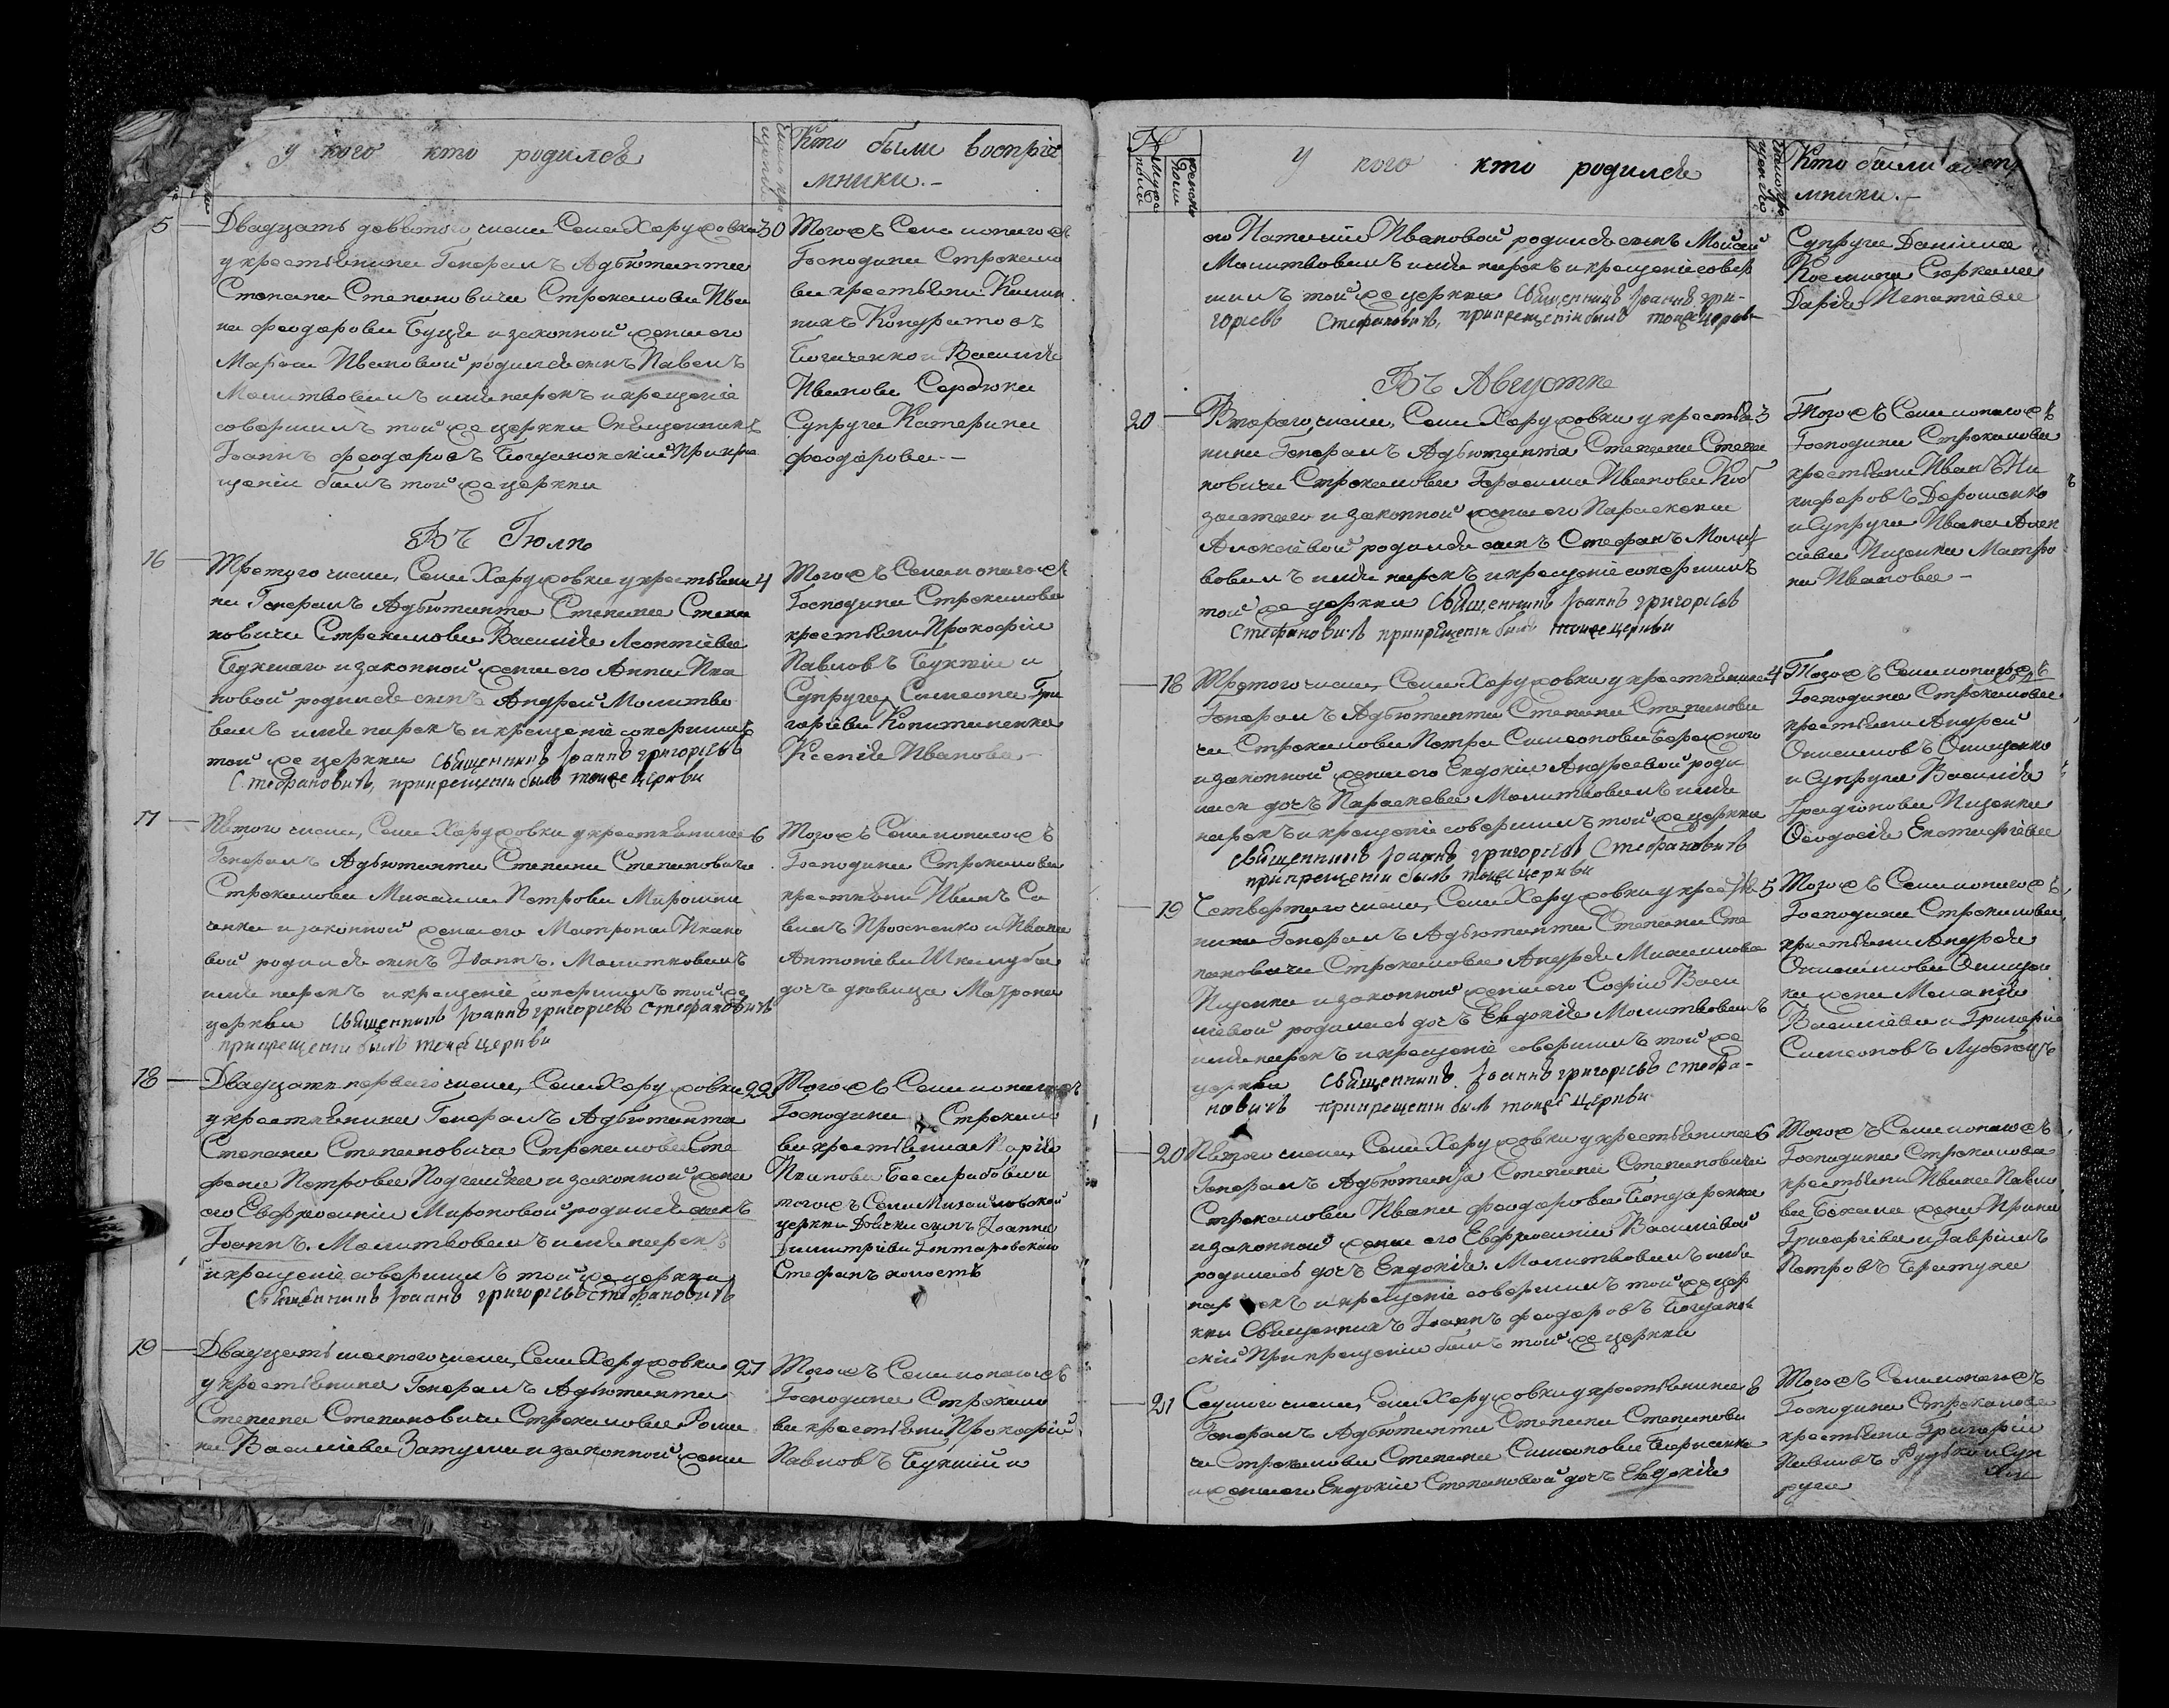 У кого кто родился
Кто были воспрiе
мники. -
5 Двадцать девятого числа Села Хоружовки 30
у крестьянина Генералъ Адъютанта
Степана Степановича Стрекалова Ива
на Феодорова Буця и законной жены его
Марѳы Ивановой родился сынъ Павелъ
Молитвовалъ имя нарекъ и крещенiе
совершилъ той же церкви Священникъ
Iоаннъ Феодоровъ Богдановскiй При кре
щенiи былъ той же церкви
Тогожъ Села и того жъ
Господина Стрекало
ва крестьяне
Кондратовъ
и Василiя
Иванова Сердюка
Супруга Катерина
Феодорова. -
Въ Iюлѣ
16 Третяго числа, Села Хоружовки у крестьяни 4
на Генералъ Адъютанта Степана Степа
новича Стрекалова Василiя Леонтiева
и законной жены его Анны Ива
новой родился сынъ Андрей Молитво
валъ имя нарекъ и крещенiе совершилъ
той же церкви Священникъ Iоаннъ Григорiевъ
Стефановичъ, при крещенiи былъ тояже церкви
Тогожъ Села и того жъ
Господина Стрекалова
крестьяне Прокофiй
Павловъ и
Супруга Симеона Гри
горiева
Ксенiя Иванова -
17 Пятого числа, Села Хоружовки у крестьянина 6
Генералъ Адъютанта Степана Степановича
Стрекалова Михаила Петрова Мирошни
ченка и законной жены его Матроны Ивано
вой родился сынъ Iоаннъ. Молитвовалъ
имя нарекъ и крещенiе совершилъ той же
церкви Священникъ Iоаннъ Григорiевъ Стефановичъ
при крещенiи былъ тояже церкви
Тогожъ Села и того жъ
Господина Стрекалова
крестьяне Иванъ Са
винъ и Ивана
Антонiева
дочь девица Матрона
18 Двадцать первого числа, Села Хоружовки 22
у крестьянина Генералъ Адъютанта
Степана Степановича Стрекалова Сте
фана Петрова и законной жены
его Евфросинiи Мироновой родился сынъ
Iоаннъ. Молитвовалъ имя нарекъ
и крещенiе совершилъ той же церкви
Священникъ Iоаннъ Григорiевъ Стефановичъ
Тогожъ Села и того жъ
Господина Стрекало
ва крестьянка Марiя
Иванова и
тогожъ Села Михайловской
церкви Дьячка сынъ Iоанна
Димитрiева
Стефанъ холостъ
19 Двадцать шестого числа, Села Хоружовки 27
у крестьянина Генералъ Адъютанта
Степана Степановича Стрекалова Рома
на Василiева и законной жены
Тогожъ Села и того жъ
Господина Стрекало
ва крестьяне Прокофiй
Павловъ и
У кого кто родился
Кто были воспр
мники. -
его Наталiи Ивановой родился сынъ Мойсей
Молитвовалъ имя нарекъ и крещенiе совер
шилъ той же церкви Священникъ Iоаннъ Гри-
горiевъ Стефановичъ, при крещенiи былъ тояже церкви
Супруга Данiила
Космина
Дарiя Игнатiева
Въ Августѣ
20 Второго числа, Села Хоружовки у крестья 3
нина Генералъ Адъютанта Степана Степа
новича Стрекалова Герасима Иванова Коб
и законной жены его Параскевы
Алексiевой родился сынъ Стефанъ Молит
вовалъ имя нарекъ и крещенiе совершилъ
той же церкви Священникъ Iоаннъ Григорiевъ
Стефановичъ при крещенiи былъ тояже церкви
Тогожъ Села и того жъ
Господина Стрекалова
крестьяне Иванъ Ни
кифоровъ Дорошенко
и Супруга Ивана Алек
сiева Пизенка Матро
на Иванова -
18 Третого числа, Села Хоружовки у крестьянина 4
Генералъ Адъютанта Степана Степанови
ча Стрекалова Петра Симеонова Бережного
и законной жены его Евдокiи Андреевой роди
лась дочь Параскева Молитвовалъ имя
нарекъ и крещенiе совершилъ той же церкви
Священникъ Iоаннъ Григорiевъ Стефановичъ
при крещенiи былъ тояже церкви
Тогожъ Села и того жъ
Господина Стрекалова
крестьяне Андрей
Онисимовъ Онищенко
и Супруга Василiя
Пизенка
Ѳеодосiя Евстафiева
19 Четвертого числа, Села Хоружовки у крестья 5
нина Генералъ Адъютанта Степана Сте
пановича Стрекалова Андрея Михайлова
Пизенка и законной жены его Софiи Васи
лiевой родилась дочь Евдокiя Молитвовалъ
имя нарекъ и крещенiе совершилъ той же
церкви Священникъ Iоаннъ Григорiевъ Стефа-
новичъ при крещенiи былъ тояже церкви
Тогожъ Села и того жъ
Господина Стрекалова
крестьяне Андрея
Онисимова Онищен
ка жена Меланiя
Василiева и Григорiй
Симеоновъ Лубенецъ
20 Пятого числа, Села Хоружовки у крестьянина 6
Генералъ Адъютанта Степана Степановича
Стрекалова Ивана Феодорова Бондаренка
и законной жены его Евфросинiи Василiевой
родилась дочь Евдокiя. Молитвовалъ имя
нарекъ и крещенiе совершилъ той же цер
кви Священникъ Iоаннъ Феодоровъ Богданов
скiй При крещенiи былъ той же церкви
Тогожъ Села и того жъ
Господина Стрекалова
крестьяне Ивана Павло
ва жена Ирина
Григорiева и Гаврiилъ
Петровъ
21 Седмого числа, Села Хоружовки у крестьянина 8
Генералъ Адъютанта Степана Степанови
ча Стрекалова Степана Симеонова Борисенка
и жены его Евдокiи Степановой дочь Евдокiя
Тогожъ Села и того жъ
Господина Стрекалова
крестьяне Григорiй
Павловъ Рудько и Суп
руга